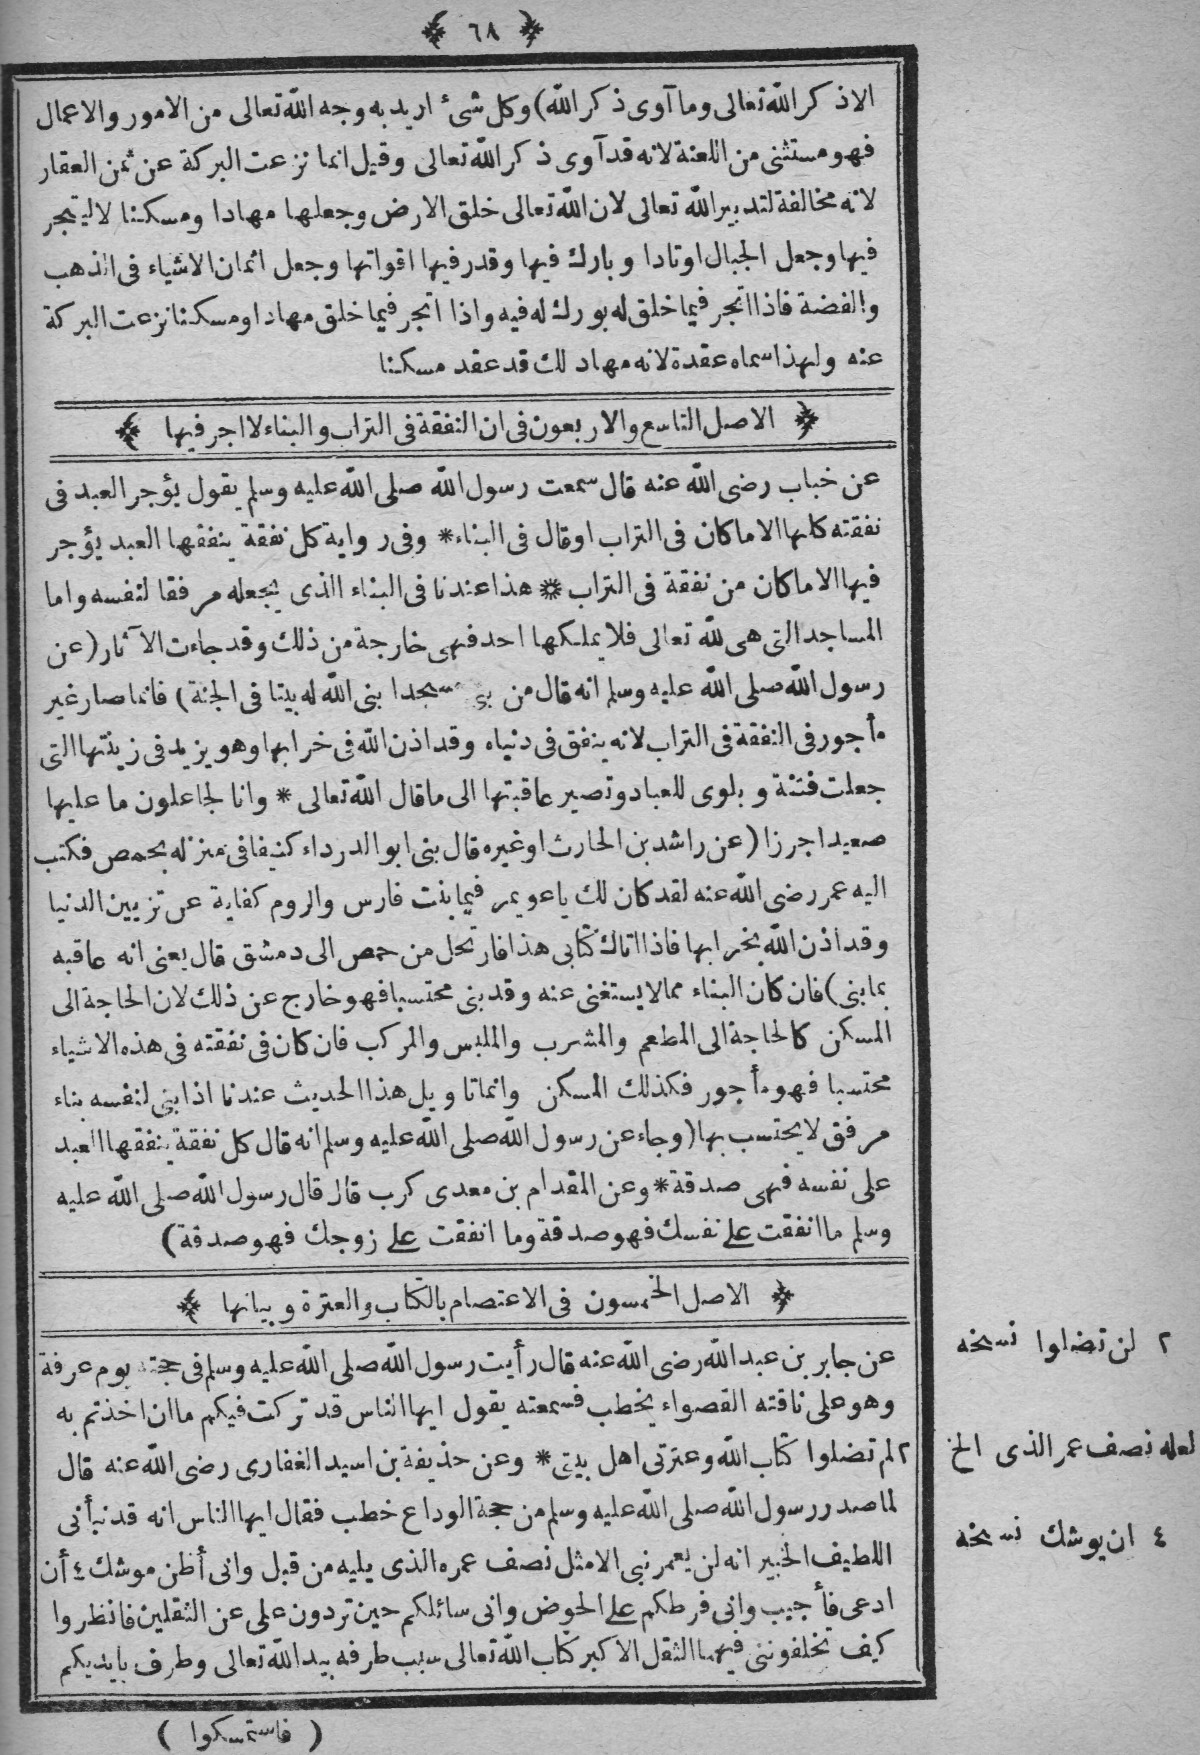 ﴿ ٦٨ ﴾
الا ذكر الله تعالى وما آوى ذكر الله) وكل شئ اريد به وجه الله تعالى من الامور والاعمال
فهو مستثنى من اللعنة لانه قد آوى ذكر الله تعالى وقيل انما نزعت البركة عن ثمن العقار
لانه مخالفة لتدبير الله تعالى لان الله تعالى خلق الارض وجعلها مهادا ومسكنا لا ليتجر
فيها وجعل الجبال اوتادا وبارك فيها وقدر فيها اقواتها وجعل اثمان الاشياء فى الذهب
والفضة فاذا اتجر فيما خلق له بورك له فيه واذا اتجر فيما خلق مهادا ومسكنا نزعت البركة
عنه ولهذا سماه عقدة لانه مهاد لك قد عقد مسكنا
﴿ الاصل التاسع والاربعون فى ان النفقة فى التراب والبناء لا اجر فيها ﴾
عن خباب رضى الله عنه قال سمعت رسول الله صلى الله عليه وسلم يقول يؤجر العبد فى
نفقته كلها الا ما كان فى التراب او قال فى البناء * وفى رواية كل نفقة ينفقها العبد يؤجر
فيها الا ما كان من نفقة فى التراب * هذا عندنا فى البناء الذى يجعله مرفقا لنفسه واما
المساجد التى هى لله تعالى فلا يملكها احد فهى خارجة من ذلك وقد جاءت الآثار (عن
رسول الله صلى الله عليه وسلم انه قال من بنى مسجدا بنى الله له بيتا فى الجنة) فانما صار غير
مأجور فى النفقة فى التراب لانه ينفق فى دنياه وقد اذن الله فى خرابها وهو يزيد فى زينتها التى
جعلت فتنة وبلوى للعباد وتصير عاقبتها الى ما قال الله تعالى * وانا لجاعلون ما عليها
صعيدا جرزا (عن راشد بن الحارث او غيره قال بنى ابو الدرداء كنيفا فى منزله بحمص فكتب
اليه عمر رضى الله عنه لقد كان لك يا عويمر فيما بنت فارس والروم كفاية عن تزيين الدنيا
وقد اذن الله بخرابها فاذا اتاك كتابى هذا فارتحل من حمص الى دمشق قال يعنى انه عاقبه
بما بنى) فان كان البناء مما لا يستغنى عنه وقد بنى محتسبا فهو خارج عن ذلك لان الحاجة الى
المسكن كالحاجة الى المطعم والمشرب والملبس والمركب فان كان فى نفقته فى هذه الاشياء
محتسبا فهو مأجور فكذلك المسكن وانما تاويل هذا الحديث عندنا اذا بنى لنفسه بناء
مرفق لا يحتسب بها (وجاء عن رسول الله صلى الله عليه وسلم انه قال كل نفقة ينفقها العبد
على نفسه فهى صدقة * وعن المقدام بن معدى كرب قال قال رسول الله صلى الله عليه
وسلم ما انفقت على نفسك فهو صدقة وما انفقت على زوجك فهو صدقة)
﴿ الاصل الخمسون فى الاعتصام بالكتاب والعترة وبيانها ﴾
عن جابر بن عبد الله رضى الله عنه قال رأيت رسول الله صلى الله عليه وسلم فى حجته يوم عرفة
وهو على ناقته القصواء يخطب فسمعته يقول ايها الناس قد تركت فيكم ما ان اخذتم به
٢ لم تضلوا كتاب الله وعترتى اهل بيتى * وعن حذيفة بن اسيد الغفارى رضى الله عنه قال
لما صدر رسول الله صلى الله عليه وسلم من حجة الوداع خطب فقال ايها الناس انه قد نبأنى
اللطيف الخبير انه لن يعمر نبى الا مثل نصف عمره الذى يليه من قبل وانى أظن موشك ٤ أن
ادعى فأجيب وانى فرطكم على الحوض وانى سائلكم حين تردون على عن الثقلين فانظروا
كيف تخلفوننى فيهما الثقل الاكبر كتاب الله تعالى سبب طرفه بيد الله تعالى وطرف بايديكم
( فاستمسكوا )
٢ لن تضلوا نسخه
لعله نصف عمر الذى الخ
٤ ان يوشك نسخه